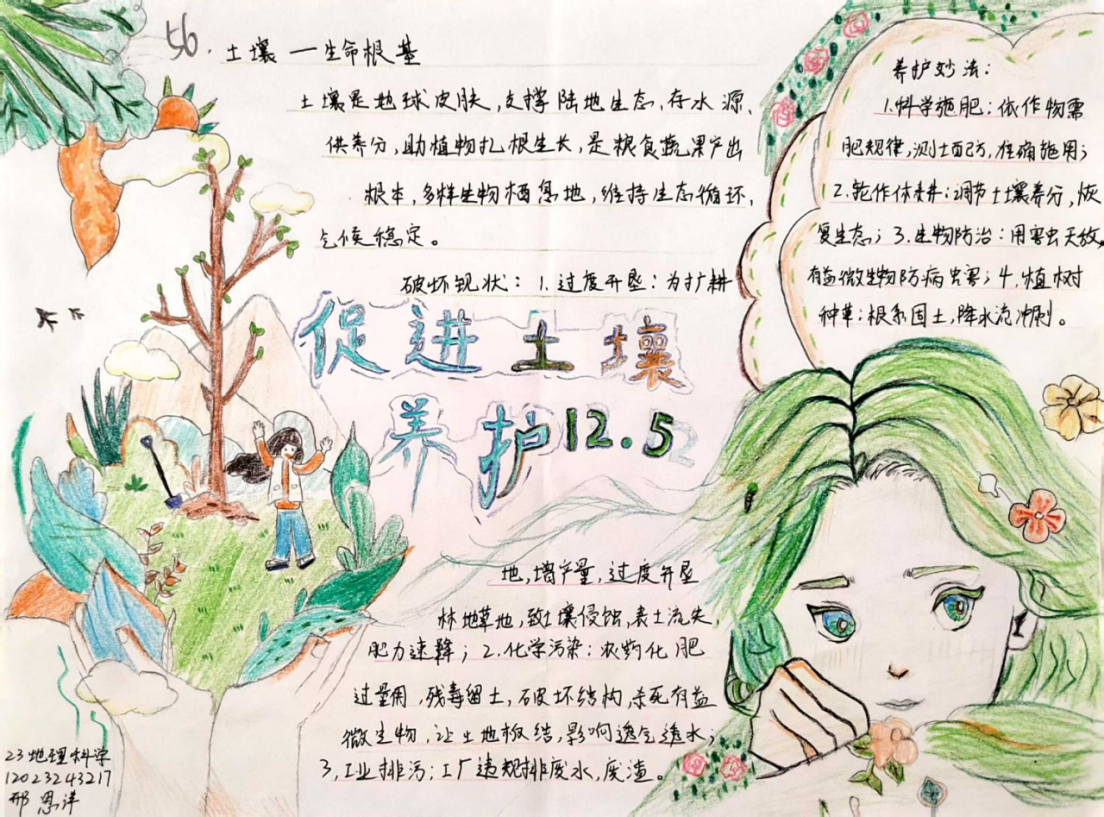 56.
土壤—生命根基
土壤是地球皮肤,支撑陆地生态,存水源、
供养分,助植物扎根生长,是粮食蔬果产出
根本,多样生物栖息地,维持生态循环、
气候稳定。
破坏现状:1.过度开垦:为扩耕
促进土壤
养护12.5
地,增产量,过度开垦
林地草地,致土壤侵蚀,表土流失,
肥力速降;2.化学污染:农药化肥
过量用,残毒留土,破坏结构,杀死有益
微生物,让土地板结,影响透气透水;
3,工业排污:工厂违规排废水,废渣。
养护妙法:
1.科学施肥:依作物需
肥规律,测土配方,准确施用;
2.轮作休耕:调节土壤养分,恢
复生态;3.生物防治:用害虫天敌,
有益微生物防病虫害;4.植树
种草:根系固土,降水流冲刷。
23地理科学
12023243217
邢恩洋